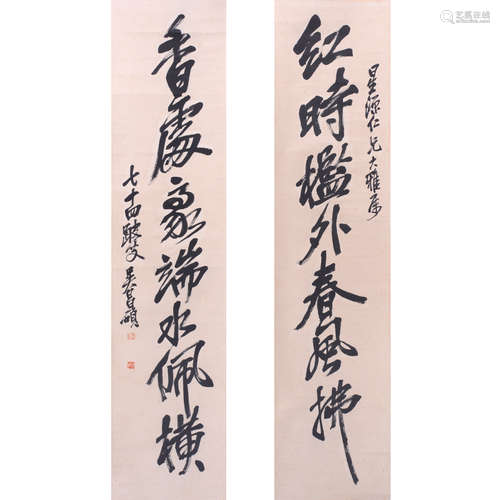 红時檻外春風拂
星源仁兄大雅屬
香處豪端水佩橫
七十四聾叟吳昌碩